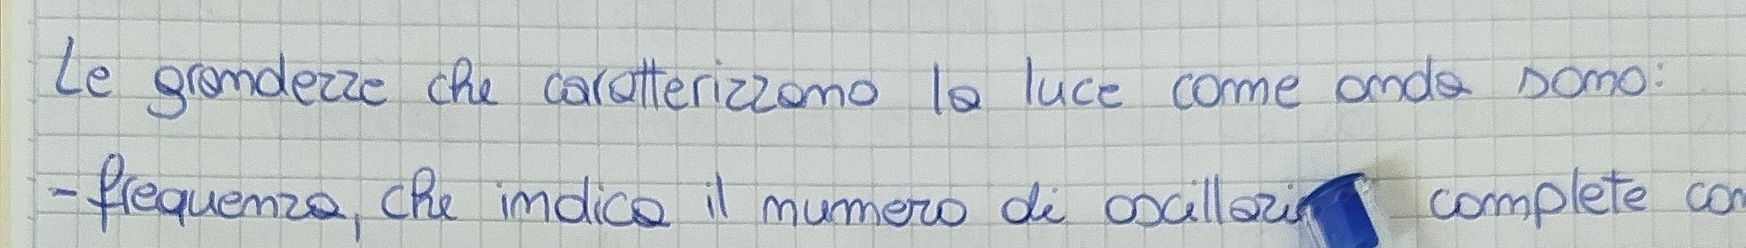 Le grandezze che caratterizzano la luce come onda sono:
- frequenza, che indica il numero di complete